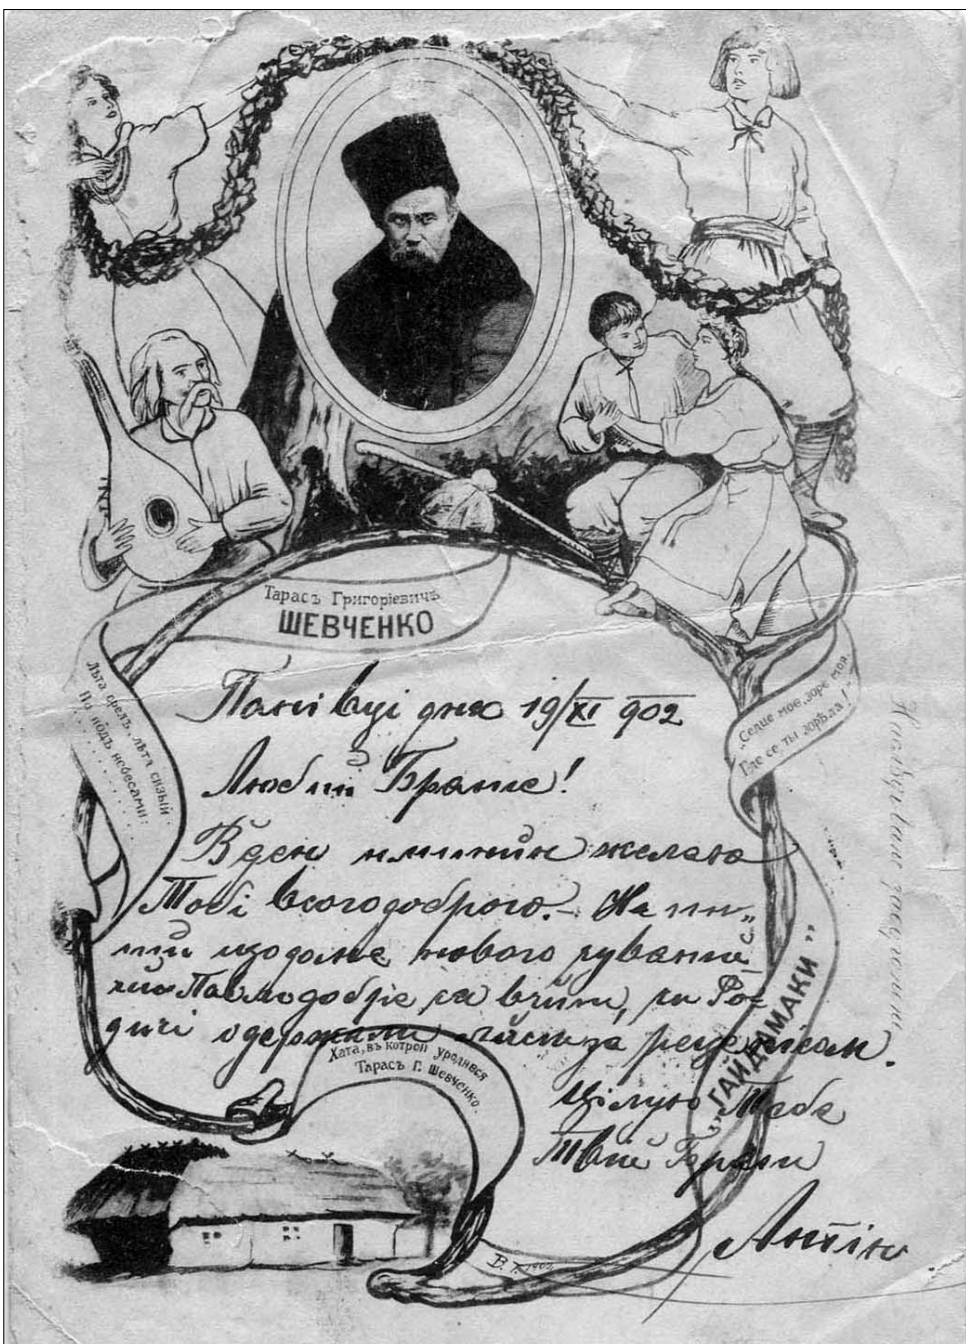 Тарасъ Григоріевичъ
ШЕВЧЕНКО
Лѣта орелъ, лѣта сизый
По подъ небесами.
„Серце мое, зоре моя,
Где се ты зорѣла!“
„ГАЙДАМАКИ“
Хата, въ котрой уродився
Тарасъ Г. Шевченко.
Панівці дня 19/XI 902
Любий Брате!
В ден имнинин желаю
Тобі всього доброго. – На
щодо нового
Павлодобре вчити,
дичі одержали за рецепісом.
Цілую Тебе
Твій Брат
Антін
В. 1902